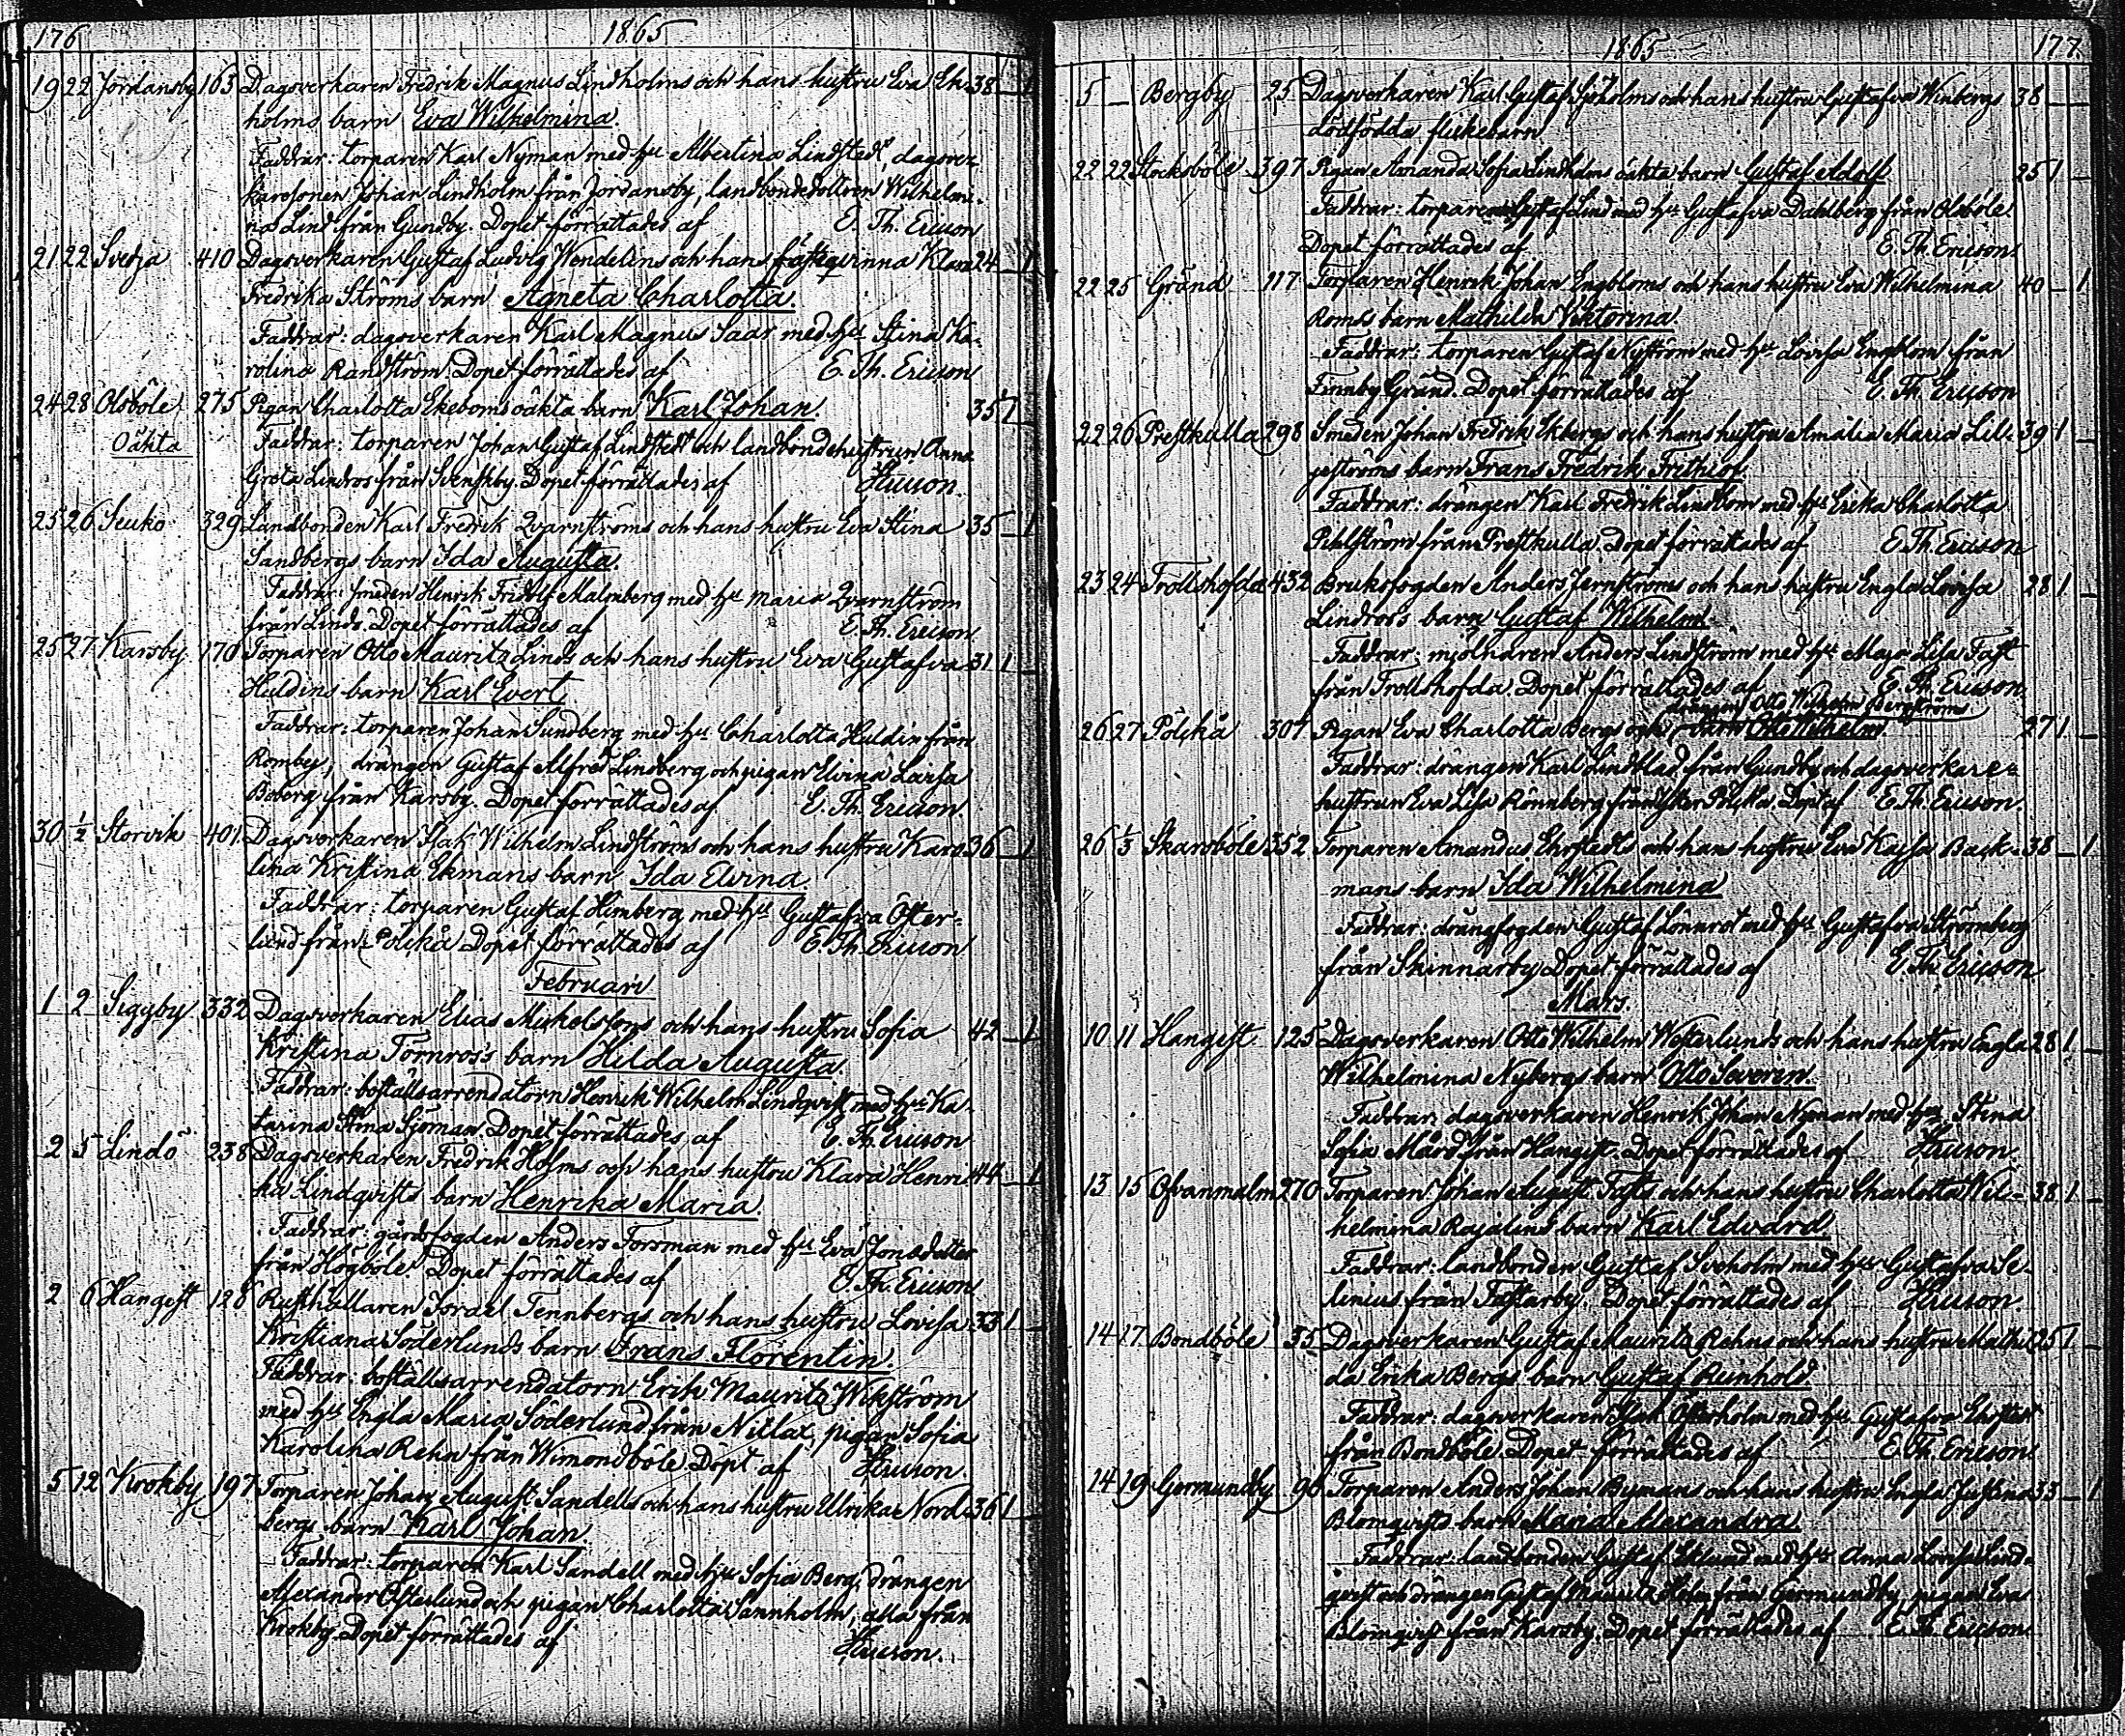 176 1865
19 22 Jordansby 163 Dagsverkaren Fredrik Magnus Lindholms och hans hustru Eva Ek- 38 1
holms barn Eva Wilhelmina.
Faddrar: torparen Karl Nyman med hu Albertina Lindstedt, dagsver-
karesonen Johan Lindholm från Jordansby, landbondedottren Wilhelmi-
na Lind från Gundby. Dopet förrättades af E. Th. Ericson
21 22 Svedja 410 Dagsverkaren Gustaf Ludvig Wendelins och hans fästeqvinna Klara 24 1
Fredrika Ströms barn Agneta Charlotta.
Faddrar: dagsverkaren Karl Magnus Saar med hu Stina Ka-
rolina Randström. Dopet förrättades af E. Th. Ericson
24 28 Olsböle 275 Pigan Charlotta Ekeboms oäkta barn Karl Johan. 35 1
Oäkta
Faddrar: torparen Johan Gustaf Lindstedt och landbondehustrun Anna
Greta Lindros från Svenskby. Dopet förrättades af Hæuson.
25 26 Seuko 329 Landbonden Karl Fredrik Qvarnströms och hans hustru Eva Stina 35 1
Sandbergs barn Ida Augusta.
Faddrar: smeden Henrik Fridolf Malmberg med hu Maria Qvarnström
från Lindö. Dopet förrättades af E. Th. Ericson
25 27 Karsby 170 Torparen Otto Mauritz Linds och hans hustru Eva Gustafva 31 1
Huldins barn Karl Evert
Faddrar: torparen Johan Sundberg med hu Charlotta Huldin från
Romby, drängen Gustaf Alfred Lindberg och pigan Elvina Lovisa
Boberg från Karsby. Dopet förrättades af E. Th. Ericson.
30 1/2 Storvik 401 Dagsverkaren Isak Wilhelm Lindströms och hans hustru Karo- 36 1
lina Kristina Ekmans barn Ida Elvina.
Faddrar: torparen Gustaf Himberg med hu Gustafva Öster-
lund från Pölckå Dopet förrättades af E. Th. Ericson
Februari
1 2 Siggby 332 Dagsverkaren Elias Mickelssons och hans hustru Sofia 42 1
Kristina Törnros's barn Hilda Augusta.
Faddrar: boställsarrendatorn Henrik Wilhelm Lindqvist med hu Ka-
tarina Stina Sjöman. Dopet förrättades af E. Th. Ericson
2 5 Lindö 238 Dagsverkaren Fredrik Holms och hans hustru Klara Henri- 44 1
ka Lindqvists barn Henrika Maria.
Faddrar: gårdsfogden Anders Forsman med hu Eva Jonsdotter
från Högböle. Dopet förrättades af E. Th. Ericson
2 6 Hangist 126 Rusthållaren Israel Tennbergs och hans hustru Lovisa 33 1
Kristiana Söderlunds barn Frans Florentin.
Faddrar: boställsarrendatorn Erik Mauritz Wikström
med hu Engla Maria Söderlund från Nitlax, pigan Sofia
Karolina Rehn från Wimondböle. Döpt af Hæuson.
5 12 Krokby 197 Torparen Johan August Sandells och hans hustru Ullrika Nord- 36 1
bergs barn Karl Johan.
Faddrar: torparen Karl Sandell med hu Sofia Berg, drängen
Alexander Österlund och pigan Charlotta Sannholm, alla från
Krokby. Dopet förrättades af Hæuson.
1865 177.
5 Bergby 25 Dagsverkaren Karl Gustaf Sjöholms och hans hustru Gustafva Winbergs 38
dödfödda flickebarn
22 22 Stocksböle 397 Pigan Amanda Sofia Lindholms oäkta barn Gustaf Adolf 25 1
Faddrar: torparen Gustaf Lind med hu Gustafva Dahlberg från Olsböle.
Dopet förrättades af E. Th. Ericson.
22 25 Gränd 117 Torparen Henrik Johan Engbloms och hans hustru Eva Wilhelmina 40 1
Roms's barn Mathilda Viktorina
Faddrar: torparen Gustaf Nyström med hu Lovisa Engblom från
Finnby Gränd. Dopet förrättades af E. Th. Ericson
22 26 Prestkulla 298 Smeden Johan Fredrik Ekbergs och hans hustru Amalia Maria Lil- 39 1
jeströms barn Frans Fredrik Frithiof
Faddrar: drängen Karl Fredrik Lindbom med hu Erika Charlotta
Pihlström från Prestkulla. Dopet förrättades af E. Th. Ericson
23 24 Trollshofda 432 Bruksfogden Anders Jernströms och hans hustru Engla Lovisa 28 1
Lindros's barn Gustaf Wilhelm
Faddrar: mjölnaren Anders Lindström med hu Maja Lisa Fast
från Trollshofda. Dopet förrättades af E. Th. Ericson
drängen Otto Wilhelm Bergströms
26 27 Pölckå 307 Pigan Eva Charlotta Bergs och barn Otto Wilhelm 27 1
Faddrar: drängen Karl Lindblad från Gundby och dagsverkare-
hustrun Eva Lisa Rönnberg från Pölckå. Döpt af E. Th. Ericson.
26 1/3 Skarsböle 352 Torparen Amandus Ehrstedts och hans hustru Eva Kajsa Back- 38 1
mans barn Ida Wilhelmina
Faddrar: drängfogden Gustaf Lönnrot med hu Gustafva Strömberg
från Skinnarby. Dopet förrättades af E. Th. Ericson
Mars.
10 11 Hangist 125 Dagsverkaren Otto Wilhelm Westerlunds och hans hustru Engla 28 1
Wilhelmina Nybergs barn Otto Severin.
Faddrar: dagsverkaren Henrik Johan Nyman med hu Stina
Sofia Mård från Hangist. Dopet förrättades af Hæuson.
13 15 Ofvanmalm 270 Torparen Johan August Fasts och hans hustru Charlotta Wil- 38 1
helmina Rajalins barn Karl Edvard.
Faddrar: landbonden Gustaf Sveholm med hu Gustafva Se-
linius från Fastarby. Dopet förrättades af Hæuson.
14 17 Bondböle 35 Dagsverkaren Gustaf Mauritz Rehns och hans hustru Mathil- 25 1
da Erika Bergs barn Gustaf Reinhold
Faddrar: dagsverkaren Isak Österholm med hu Gustafva Ehrstedt
från Bondböle. Dopet förrättades af E. Th. Ericson.
14 19 Germundby 90 Torparen Anders Johan Bymans och hans hustru Engla Justina 33 1
Blomqvists barn Maria Alexandra.
Faddrar: landbonden Gustaf Eklund med hu Anna Lovisa Lind-
qvist och drängen Gustaf Mauritz Holm från Germundby, pigan Eva
Blomqvist från Karsby. Dopet förrättades af E. Th. Ericson